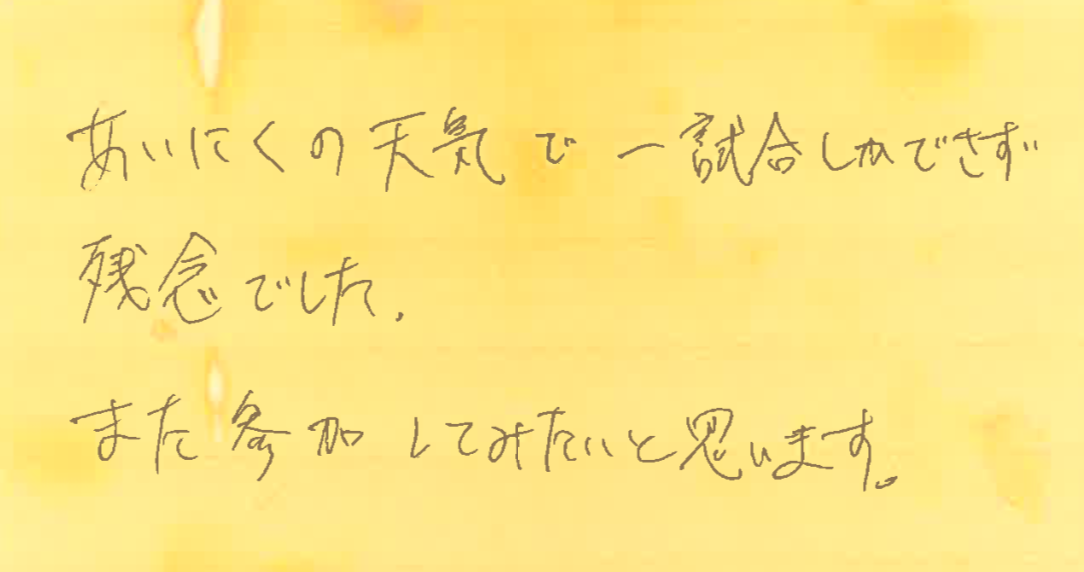 あいにくの天気で一試合しかできず
残念でした.
また参加してみたいと思います。